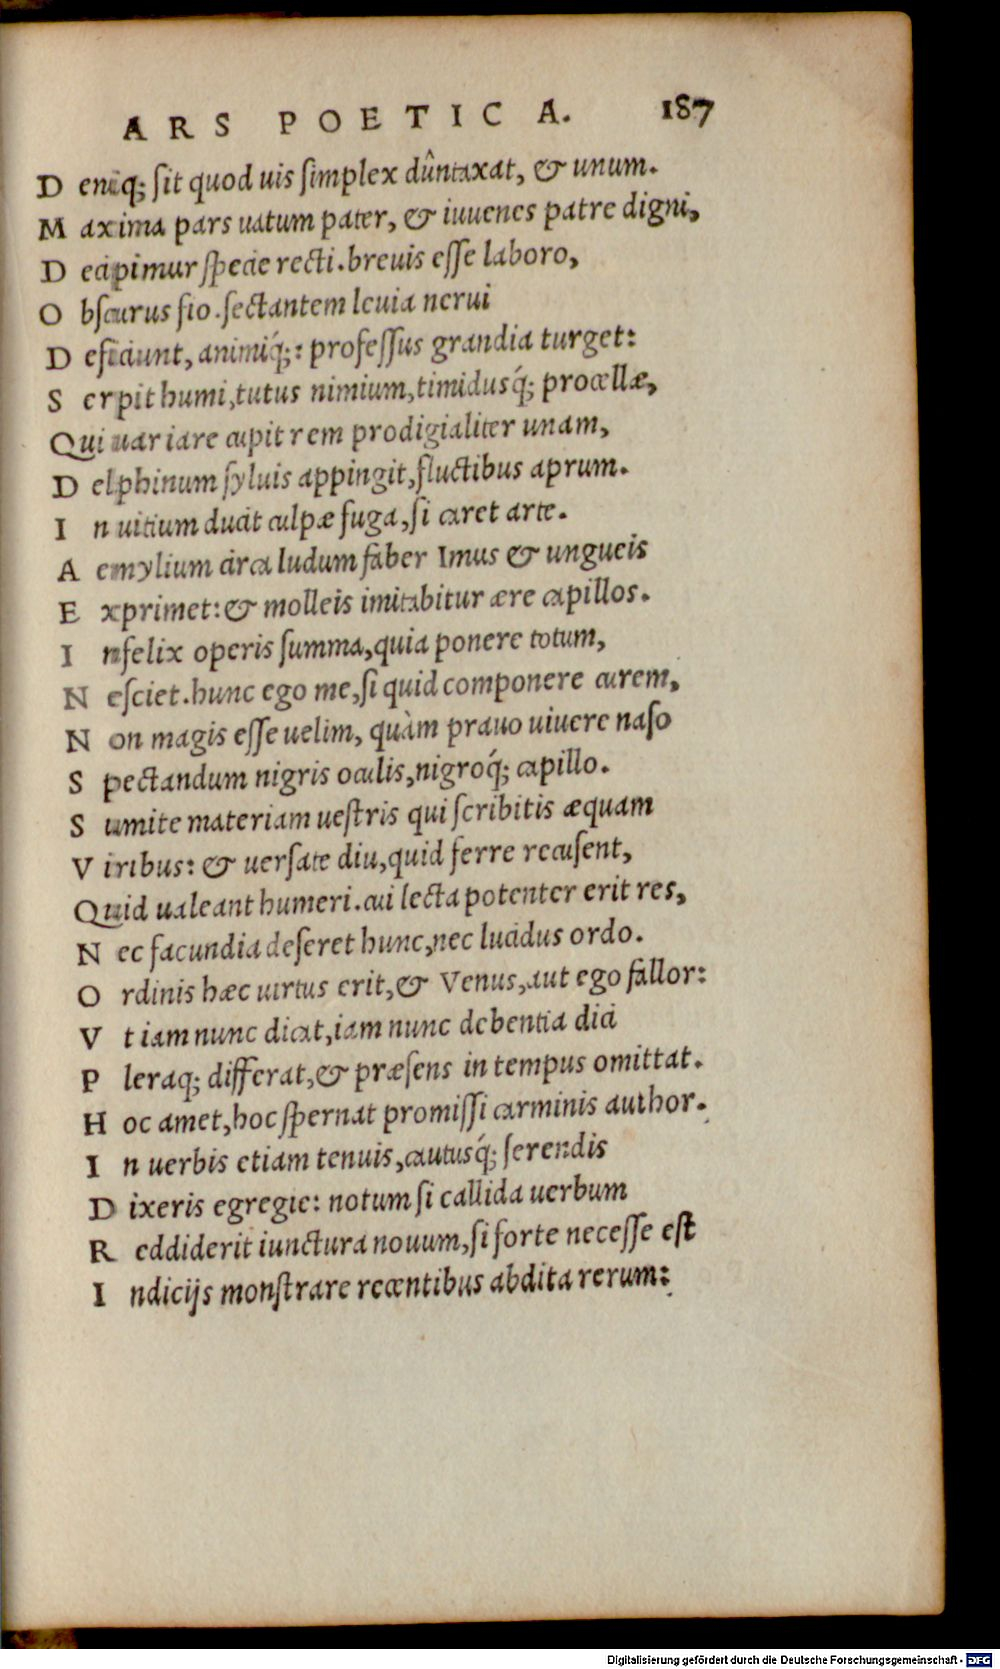 ARS POETICA. 187
D eniq; sit quod uis simplex dûntaxat, & unum.
M axima pars uatum pater, & iuuenes patre digni,
D ecipimur specie recti. breuis esse laboro,
O bscurus fio. sectantem leuia nerui
D eficiunt, animiq́;: professus grandia turget:
S erpit humi, tutus nimium, timidusq́; procellæ,
Qui uariare cupit rem prodigialiter unam,
D elphinum syluis appingit, fluctibus aprum.
I n uitium ducit culpæ fuga, si caret arte.
A emylium circa ludum faber Imus & ungueis
E xprimet: & molleis imitabitur ære capillos.
I nfelix operis summa, quia ponere totum,
N esciet. hunc ego me, si quid componere curem,
N on magis esse uelim, quàm prauo uiuere naso
S pectandum nigris oculis, nigroq́; capillo.
S umite materiam uestris qui scribitis æquam
V iribus: & uersate diu, quid ferre recusent,
Quid ualeant humeri. cui lecta potenter erit res,
N ec facundia deseret hunc, nec lucidus ordo.
O rdinis hæc uirtus erit, & Venus, aut ego fallor:
V t iam nunc dicat, iam nunc debentia dici
P leraq; differat, & præsens in tempus omittat.
H oc amet, hoc spernat promissi carminis author.
I n uerbis etiam tenuis, cautusq́; serendis
D ixeris egregie: notum si callida uerbum
R eddiderit iunctura nouum, si forte necesse est
I ndicijs monstrare recentibus abdita rerum:
Digitalisierung gefördert durch die Deutsche Forschungsgemeinschaft - DFG